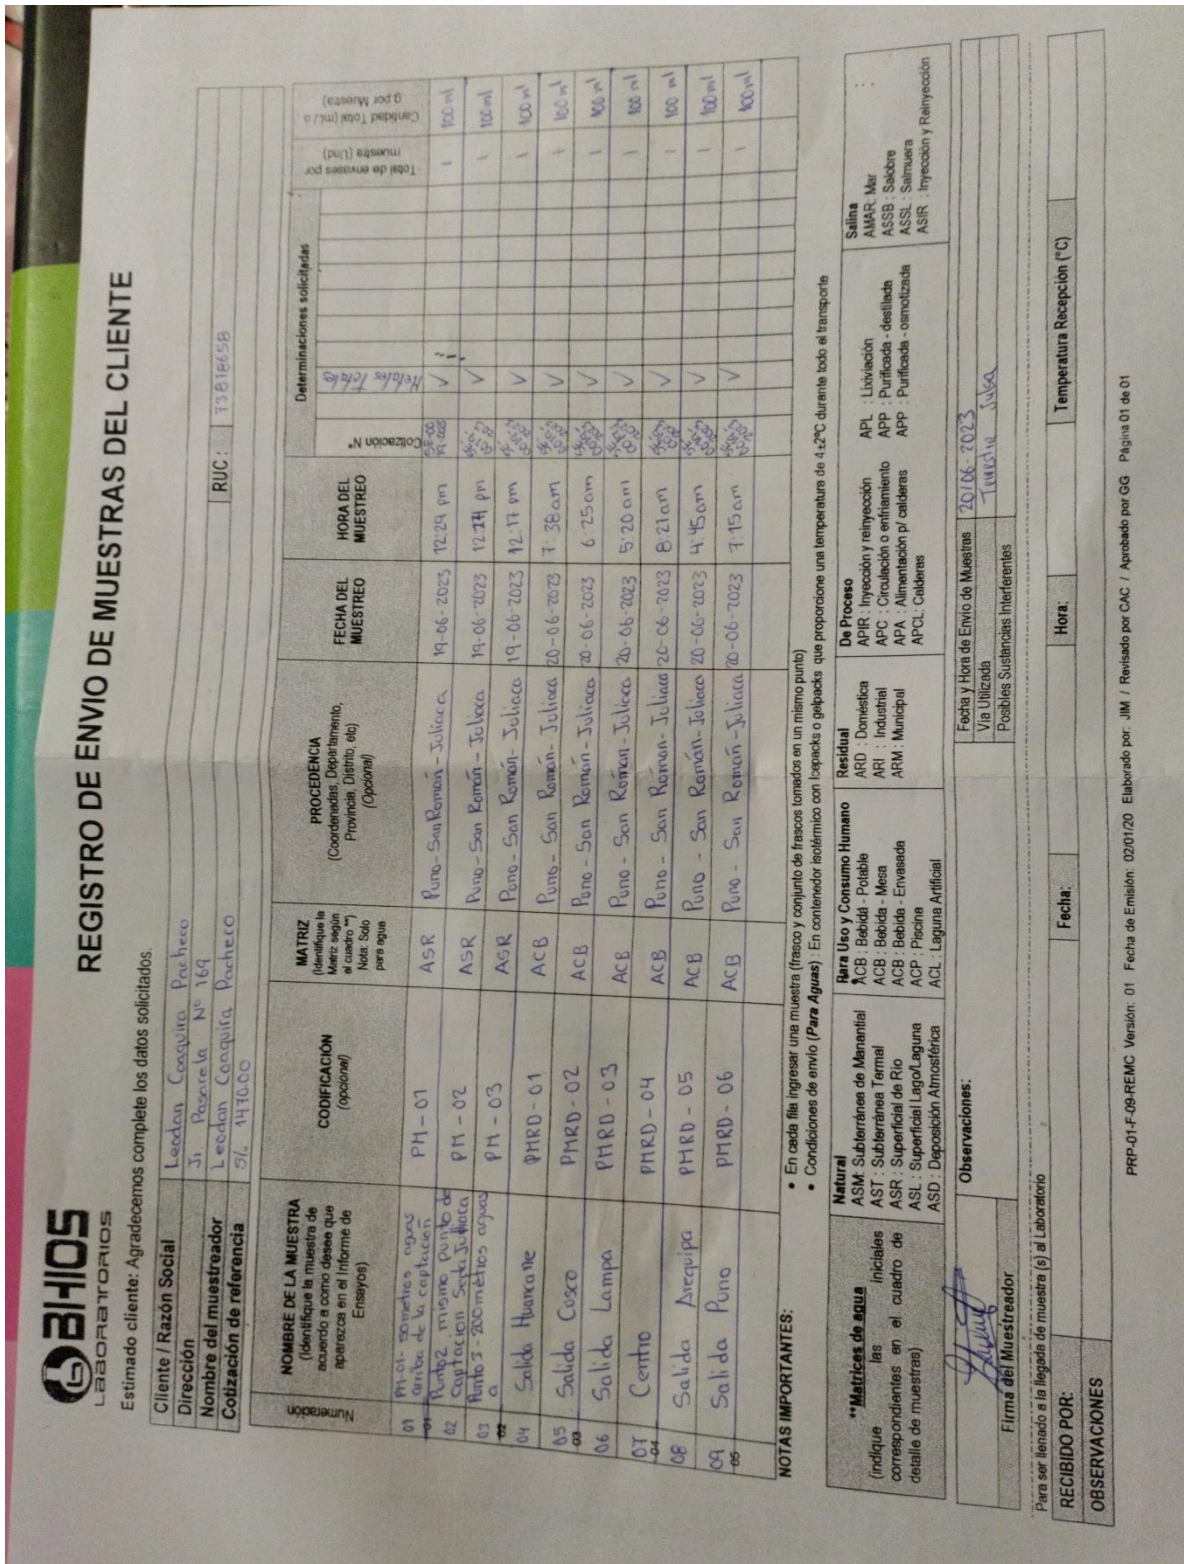 BHIOS
LABORATORIOS
REGISTRO DE ENVIO DE MUESTRAS DEL CLIENTE
Estimado cliente: Agradecemos complete los datos solicitados.
Cliente / Razón Social Leodan Coaquira Pacheco
Dirección Jr. Pasarela Nº 169 RUC: 73818658
Nombre del muestreador Leodan Coaquira Pacheco
Cotización de referencia S/. 1470.00
Numeración
NOMBRE DE LA MUESTRA
(Identifique la muestra de
acuerdo a como desee que
aparezca en el Informe de
Ensayos)
CODIFICACIÓN
(opcional)
MATRIZ
(Identifique la
Matriz según
el cuadro **)
Nota: Solo
para agua
PROCEDENCIA
(Coordenadas, Departamento,
Provincia, Distrito, etc)
(Opcional)
FECHA DEL
MUESTREO
HORA DEL
MUESTREO
Determinaciones solicitadas
Cotización N°
Metales Totales
Total de envases por
muestra (Und)
Cantidad Total (mL o
g por Muestra)
01 PM-01- 50 metros aguas
arriba de la captación PM-01 ASR Puno-San Román-Juliaca 19-06-2023 12:29 pm ✓ 1 100 ml
02 Punto 2 mismo punto de
Captacion Seda Juliaca PM-02 ASR Puno-San Román-Juliaca 19-06-2023 pm ✓ 1 100ml
03 Punto 3 - 200 metros aguas
a PM-03 ASR Puno-San Román-Juliaca 19-06-2023 12:17 pm ✓ 1 100 ml
04 Salida Huancane PMRD-01 ACB Puno-San Román-Juliaca 20-06-2023 7:38am ✓ 1 100 ml
05 Salida Cusco PMRD-02 ACB Puno-San Román-Juliaca 20-06-2023 6:25am ✓ 1 100 ml
06 Salida Lampa PMRD-03 ACB Puno-San Román-Juliaca 20-06-2023 5:20 am ✓ 1 100 ml
07 Centro PMRD-04 ACB Puno-San Román-Juliaca 20-06-2023 8:21am ✓ 1 100 ml
08 Salida Arequipa PMRD-05 ACB Puno-San Román-Juliaca 20-06-2023 4:45am ✓ 1 100ml
09 Salida Puno PMRD-06 ACB Puno-San Román-Juliaca 20-06-2023 7:15am ✓ 1 100ml
NOTAS IMPORTANTES:
• En cada fila ingresar una muestra (frasco y conjunto de frascos tomados en un mismo punto)
• Condiciones de envío (Para Aguas) : En contenedor isotérmico con Icepacks o gelpacks que proporcione una temperatura de 4±2ºC durante todo el transporte
**Matrices de agua
(indique las iniciales
correspondientes en el cuadro de
detalle de muestras)
Natural
ASM: Subterránea de Manantial
AST : Subterránea Termal
ASR : Superficial de Río
ASL : Superficial Lago/Laguna
ASD : Deposición Atmosférica
Para Uso y Consumo Humano
ACB : Bebida - Potable
ACB : Bebida - Mesa
ACB : Bebida - Envasada
ACP : Piscina
ACL : Laguna Artificial
Residual
ARD : Doméstica
ARI : Industrial
ARM : Municipal
De Proceso
APIR : Inyección y reinyección
APC : Circulación o enfriamiento
APA : Alimentación p/ calderas
APCL: Calderas
APL : Lixiviación
APP : Purificada - destilada
APP : Purificada - osmotizada
Salina
AMAR: Mar
ASSB : Salobre
ASSL : Salmuera
ASIR : Inyección y Reinyección
Firma del Muestreador
Observaciones:
Fecha y Hora de Envío de Muestras 20/06-2023
Vía Utilizada Terrestre
Posibles Sustancias Interferentes
Para ser llenado a la llegada de muestra (s) al Laboratorio
RECIBIDO POR: Fecha: Hora: Temperatura Recepción (°C)
OBSERVACIONES
PRP-01-F-09-REMC Versión: 01 Fecha de Emisión: 02/01/20 Elaborado por: JIM / Revisado por CAC / Aprobado por GG Página 01 de 01